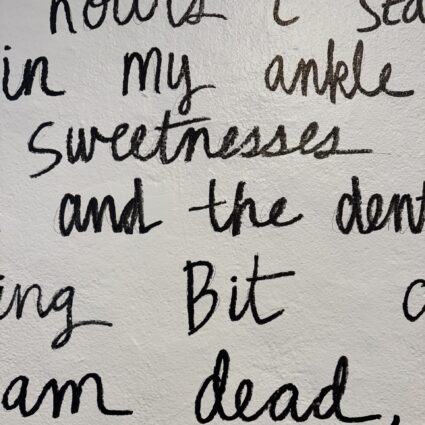 hours I sta
in my ankle
sweetnesses
and the dent
ing Bit
am dead,